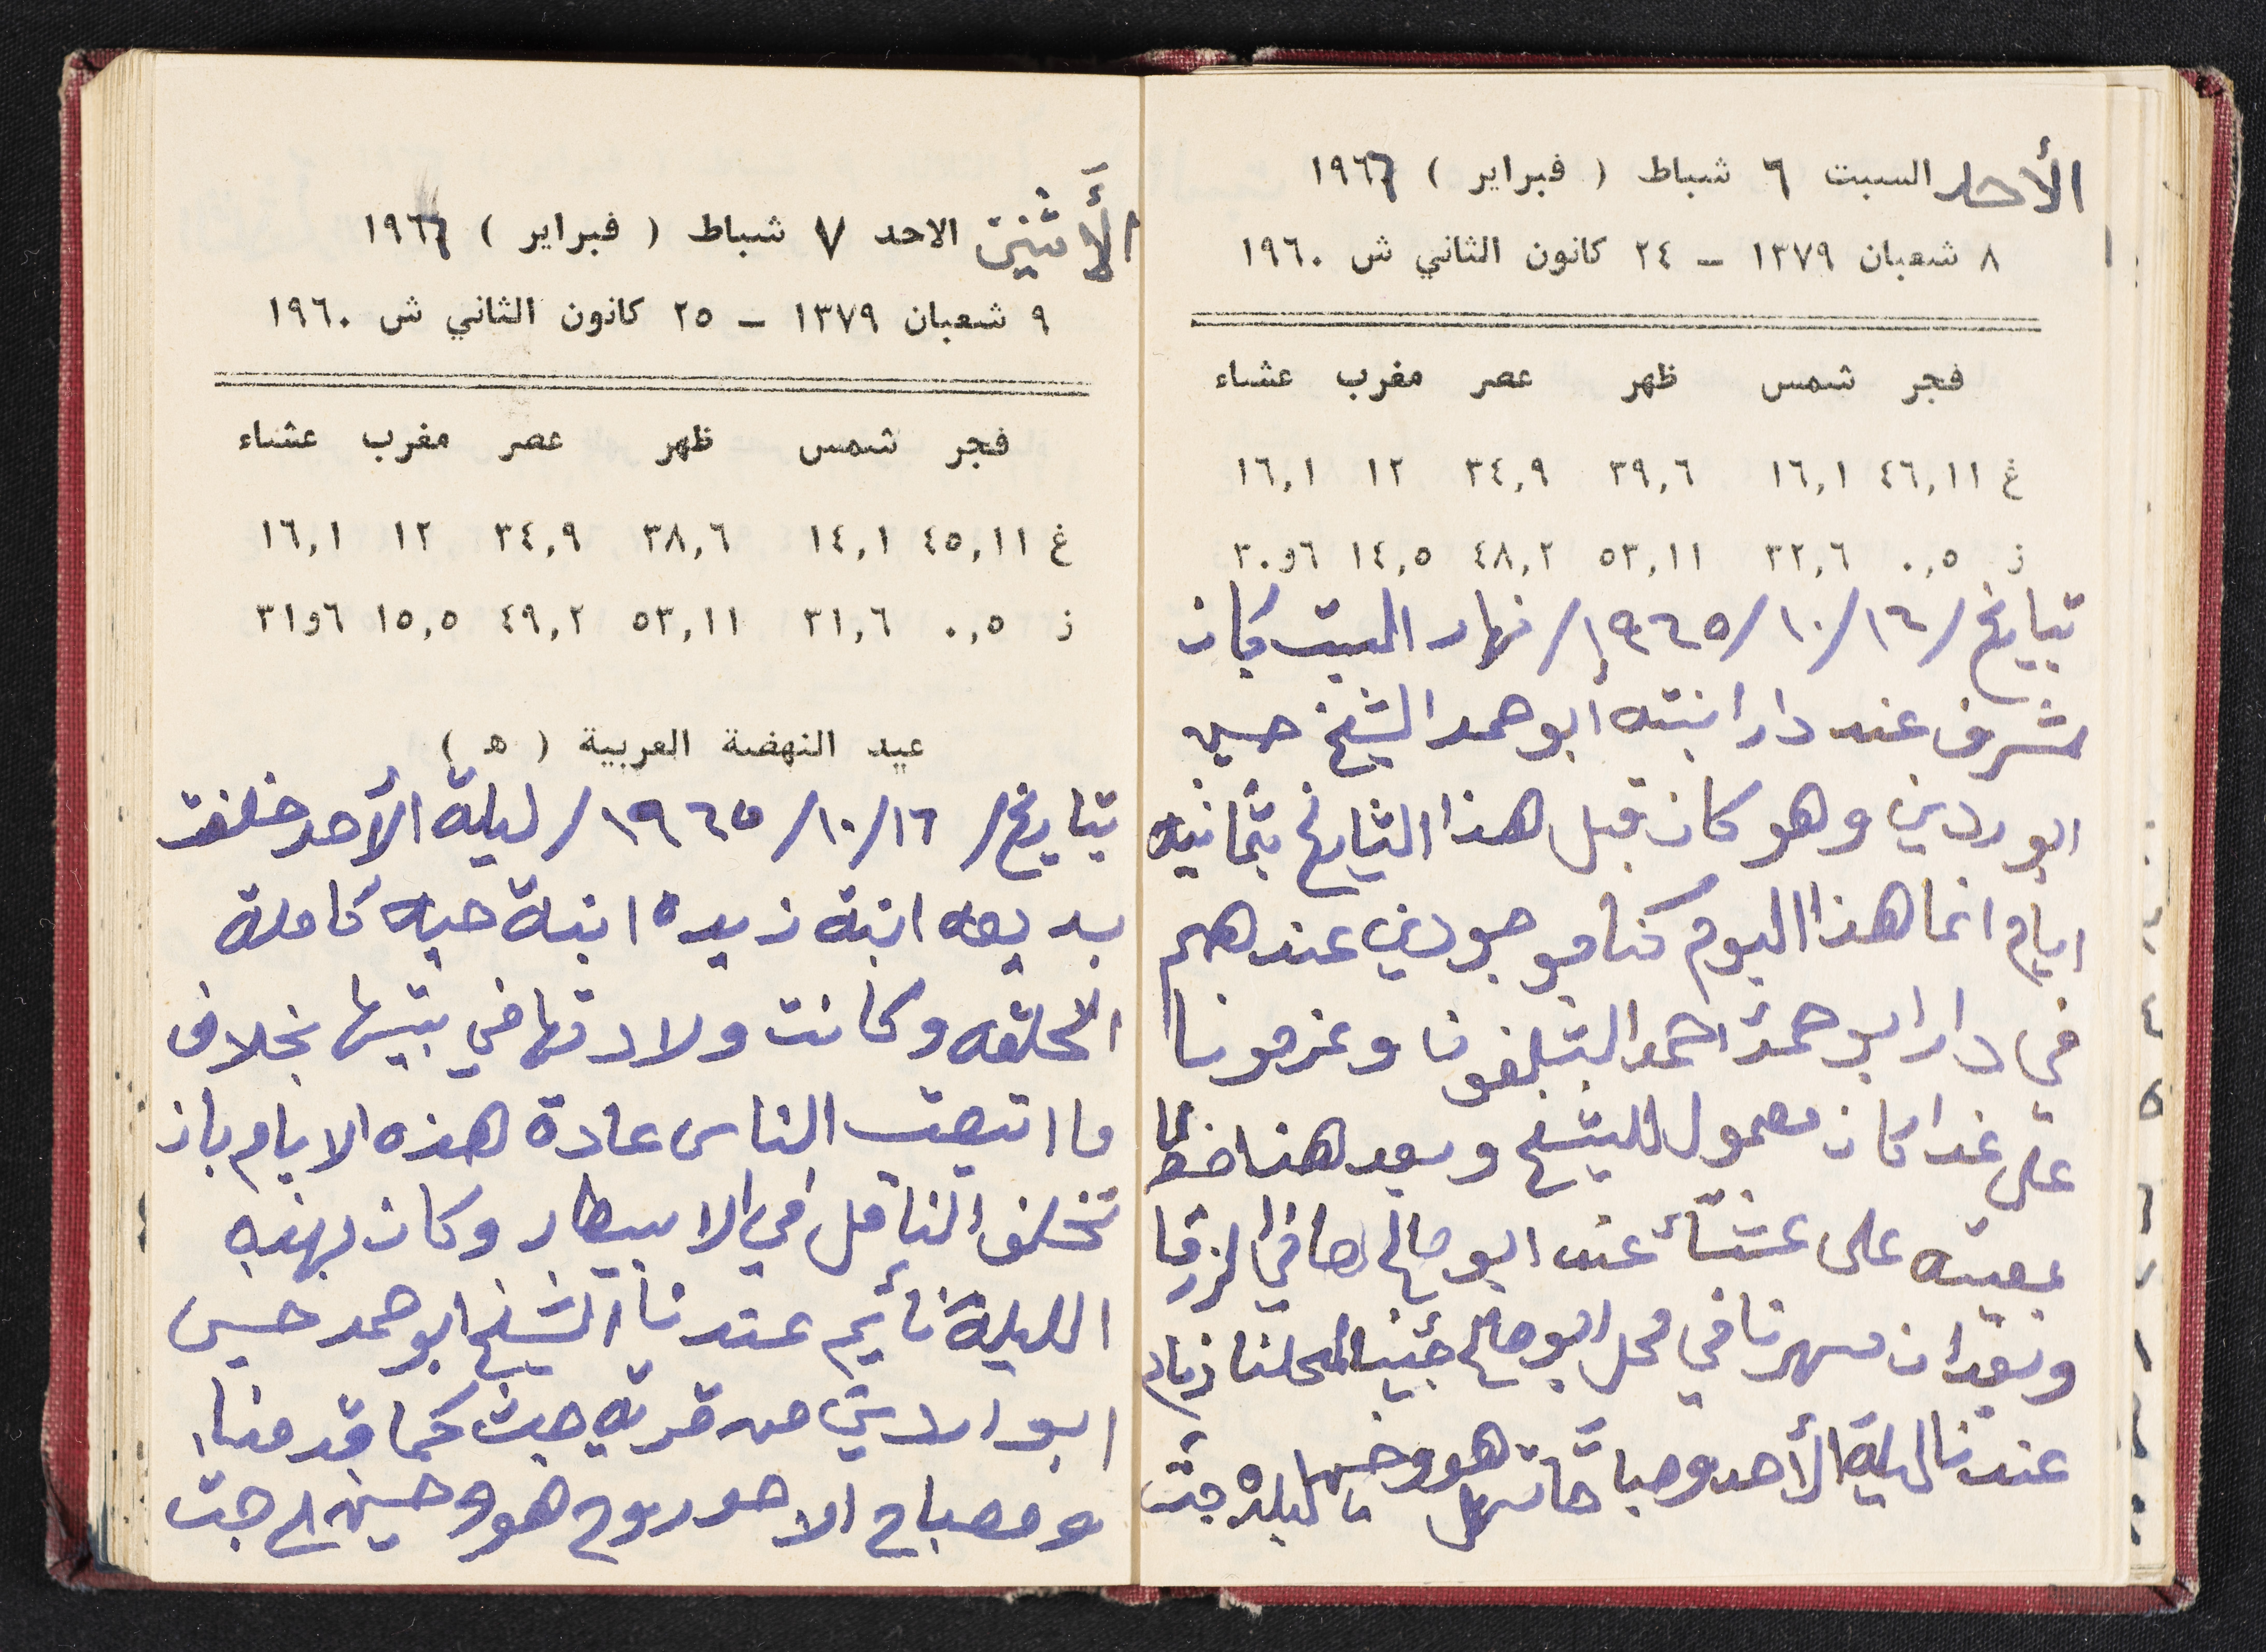 الأحد السبت ٦ شباط ( فبراير ) ١٩٦٦
٨ شعبان ١٣٧٩ – ٢٤ كانون الثاني ش ١٩٦٠
فجر شمس ظهر عصر مغرب عشاء
غ ٤٦,١١ ١٦,١ ٣٩,٦ ٣٤,٩ ١٢ ١٦,١
ز ٠,٥ ٣٢,٦ ٥٣,١١ ٤٨,٢ ١٤,٥ ٦و٣٠
بتايخ /١٦/١٠/١٩٦٥/ نهار السبت كان
مشرف عند دار ابنته أبو حمد الشيخ حسين
ابو ردين وهو كان قبل هذا التايخ بثمانيه
ايام انما هذا اليوم كنا موجودين عندهم
في دار ابو حمد احمد التلفوني وعزمونا
على غدا كان معمول للشيخ وبعد هنا
بعيته على عشاء عند ابو صالح هاني الزرقا
وبعد ان سهرنا في محل ابو صالح جينا لمحلنا ونام
عندنا ليلة الأحد وصباحًا هو وحسين لبلده جث
الأثنين الاحد ٧ شباط ( فبراير ) ١٩٦٦
٩ شعبان ١٣٧٩ – ٢٥ كانون الثاني ش ١٩٦٠
فجر شمس ظهر عصر مغرب عشاء
غ ٤٥,١١ ١٤,١ ٣٨,٦ ٣٤,٩ ١٢ ١٦,١
ز ٠,٥ ٣١,٦ ٥٣,١١ ٤٩,٢ ١٥,٥ ٦و٣١
عيد النهضة العربية ( ه )
بتايخ/ ١٦/١٠/١٩٦٥/ ليلة الأحد خلفت
بديعه ابنة زيده ابنة حيه كاملة
الخلقه وكانت ولادتها في بيتها بخلاف
ما اتبعت الناس عادة هذه الايام بان
تخلف الناس في الاسبيطار وكان بهذه
الليلة نائيم عندنا الشيخ ابو حمد حسين
ابو اردين من قرية جث كما قدمنا
ومصباح الاحد روح هو وحسين لجث